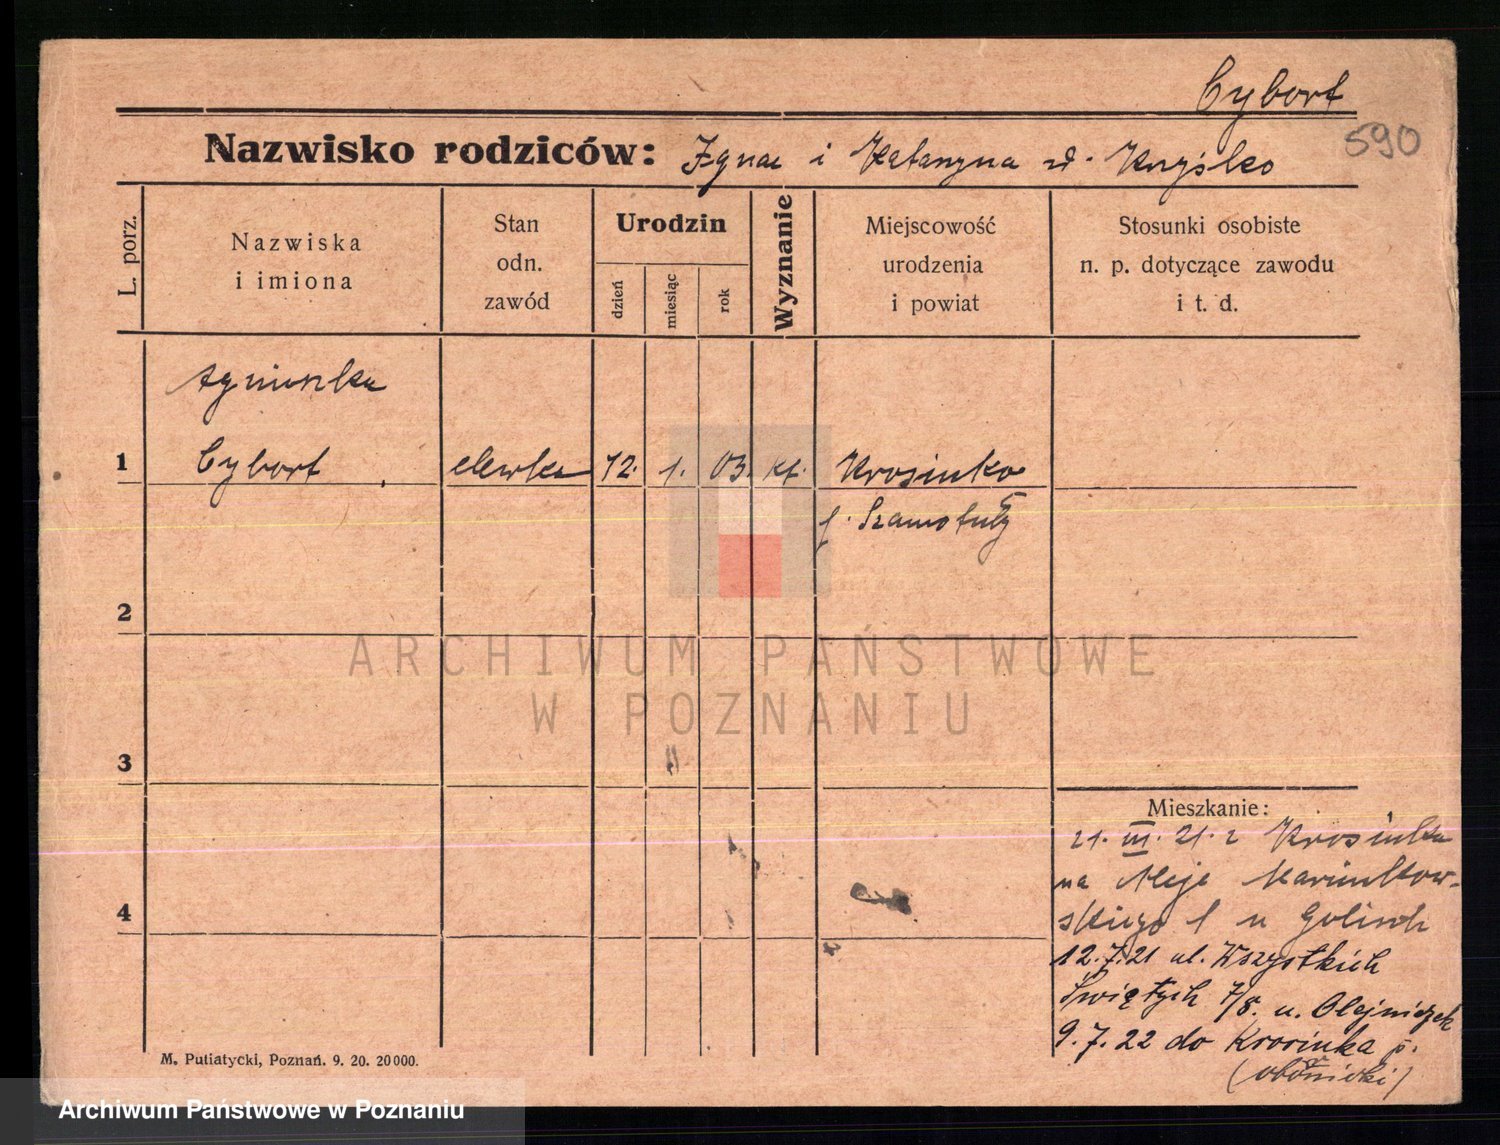 Cybort
590
Nazwisko rodziców: Ignac i Katarzyna z d. Kryśko
L. porz.
Nazwiska
i imiona
Stan
odn.
zawód
Urodzin
dzień
miesiąc
rok
Wyznanie
Miejscowość
urodzenia
i powiat
Stosunki osobiste
n. p. dotyczące zawodu
i t. d.
Agnieszka
1 Cybort elewka 12. 1. 03. kt. Krosinko
p. Szamotuły
2
ARCHIWUM PAŃSTWOWE
W POZNANIU
3
Mieszkanie:
21. III. 21. z Krosinka
na Aleje Marcinkow-
skiego 1 u
4
12.7.21 ul. Wszystkich
Świętych 7/8. u. Olejniczek
9.7.22 do Krosinka p.
(obornicki)
M. Putiatycki, Poznań. 9. 20. 20000.
Archiwum Państwowe w Poznaniu